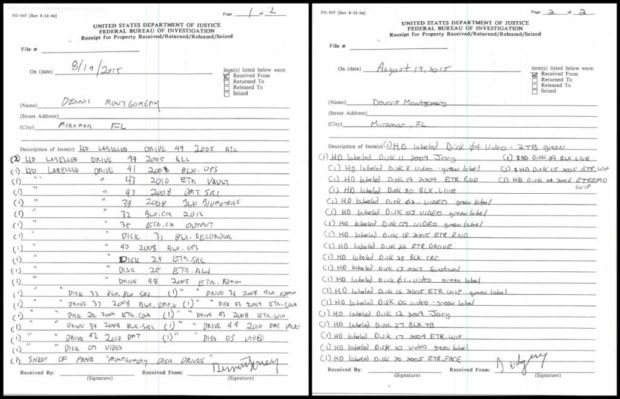 FD-597 (Rev 8-11-94)
Page 1 of 2
UNITED STATES DEPARTMENT OF JUSTICE
FEDERAL BUREAU OF INVESTIGATION
Receipt for Property Received/Returned/Released/Seized
File #
On (date) 8/19/2015
item(s) listed below were:
Received From
Returned To
Released To
Seized
(Name) DENNIS MONTGOMERY
(Street Address)
(City) MIRAMAR FL
Description of Item(s): HD LABELLED DRIVE 49 2005 ALL
HD LABELLED DRIVE 49 2005 ALL
(1) HD LABELLED DRIVE 41 2008 BLX.UPS
(1) " " 43 2010 ETR VAULT
(1) " " 47 2008 DMT SRC
(1) " " 39 2008 BLX BIOMETRICS
(1) " " 32 BLX.CIA 2012
(1) " " 35 ETR.CIA OUTPUT
(1) " DISK 31 BLX.RECORDER
(1) " " 40 2008 BLX.UPS
(1) " DISK 24 ETR.SRC
(1) " DISK 25 ETR.ALL
(1) " DRIVE 48 2005
(1) " DISK 33 BLX (1) " DRIVE 36 2008
(1) " DRIVE 37 2008 (1) "
(1) " DISK (1) " DRIVE 45 2008
(1) " DRIVE 34 2008 BLX.SRC (1) " DRIVE 44 2010 DMT
(1) " DRIVE 42 2010 DMT (1) " DISK 05 VIDEO
(1) " DISK 07 VIDEO
(1) SHEET OF PAPER "MONTGOMERY DISK DRIVES"
Received By: (Signature)
Received From: (Signature)
FD-597 (Rev 8-11-94)
Page 2 of 2
UNITED STATES DEPARTMENT OF JUSTICE
FEDERAL BUREAU OF INVESTIGATION
Receipt for Property Received/Returned/Released/Seized
File #
On (date) August 19, 2015
item(s) listed below were:
Received From
Returned To
Released To
Seized
(Name) Dennis Montgomery
(Street Address)
(City) Miramar, FL
Description of Item(s): (1) HD labeled Disk 04 Video - 2TB green
(1) HD labeled Disk 11 2009 (1) HD Disk 29 BLX.LIVE
(1) HD labeled Disk 8 Video - green label (1) HD Disk 15 2005 ETR.WIP
(1) HD labeled Disk 19 2005 ETR.RND (1) HD Disk 14 2005
(1) HD labeled Disk 30 BLX.LIVE WIP
(1) HD labeled Disk 02 VIDEO green label
(1) HD labeled Disk 03 VIDEO green label
(1) HD labeled Disk 09 VIDEO green label
(1) HD labeled Disk 18 2005 ETR.RND
(1) HD labeled Disk 26 ETR.DRIVE
(1) HD labeled Disk 28 BLX.TRC
(1) HD labeled Disk 13 2009
(1) HD labeled Disk 01 VIDEO green label
(1) HD labeled Disk 16 2005 ETR.WIP green label
(1) HD labeled Disk 06 video - green label
(1) HD labeled Disk 12 2009
(1) HD labeled Disk 27 BLX.TB
(1) HD labeled Disk 17 2009 ETR.WIP
(1) HD labeled Disk 10 video green label
(1) HD labeled Disk 20 2005 ETR.FACE
Received By: (Signature)
Received From: (Signature)